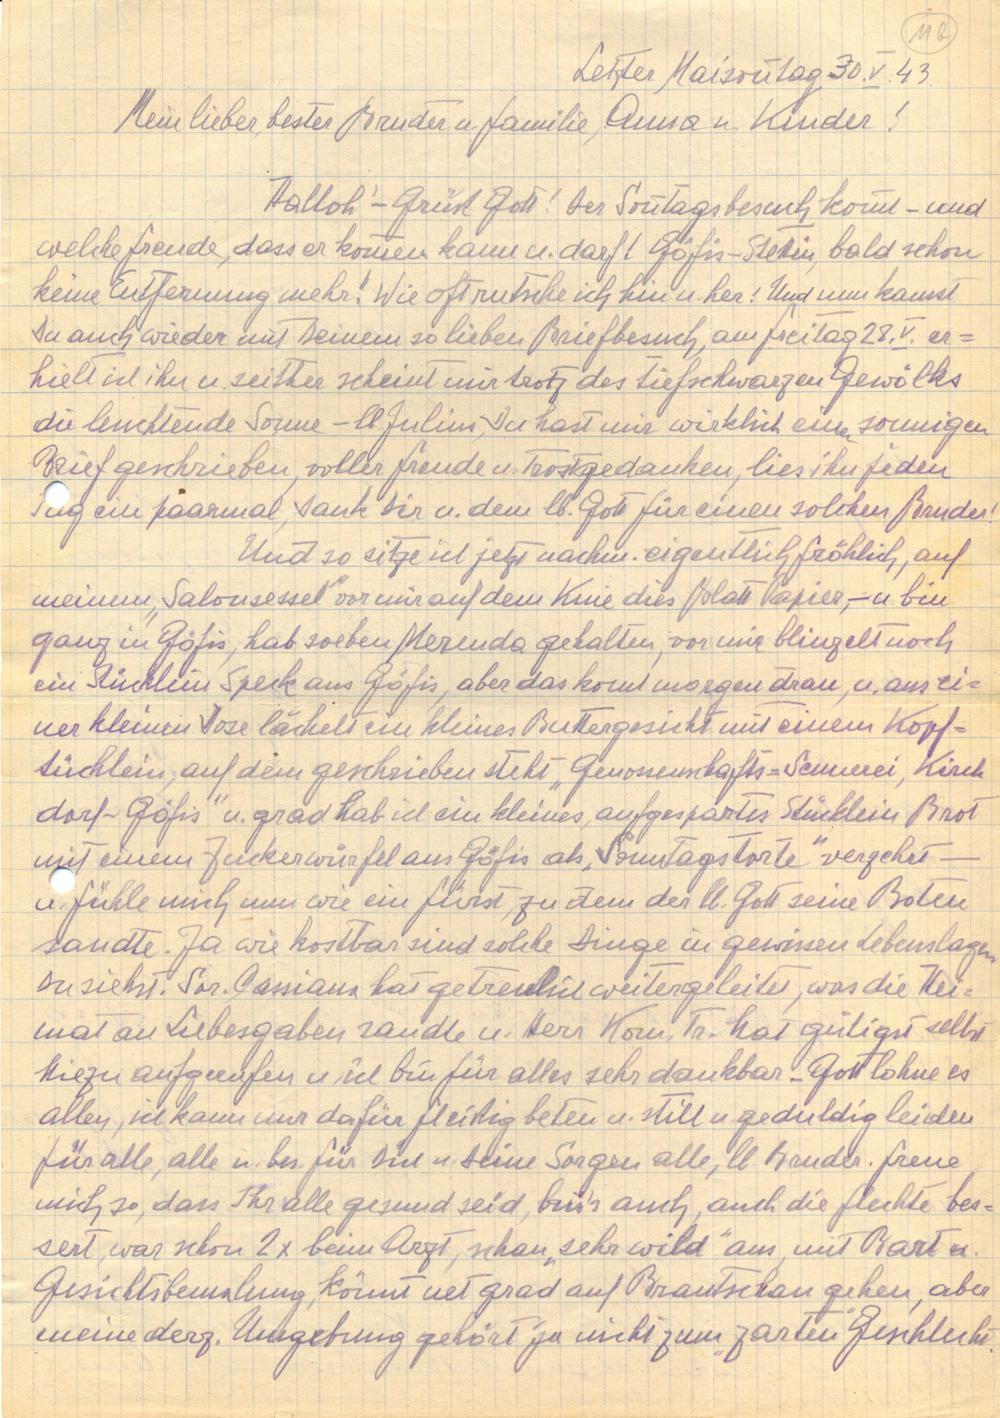 11a
Letzter Maisontag 30.V.43.
Mein lieber, bester Bruder u. Familie, Anna u. Kinder!
Halloh! – Grüsk Gott! Der Sontagsbesuch komt – und
welche Freude, dass er komen kann u. darf! Göfis–Stettin, bald schon
keine Entfernung mehr! Wie oft rutsche ich hin u. her! Und nun kamst
Du auch wieder mit Deinem so lieben Briefbesuch, am Freitag 28.V. er=
hielt ich ihn u. seither scheint mir trotz des tiefschwarzen Gewölks
die leuchtende Sonne – lb. Julius, Du hast mir wirklich einen sonnigen
Brief geschrieben, voller Freude u. Trostgedanken, lies ihn jeden
Tag ein paarmal, Dank Dir u. dem lb. Gott für einen solchen Bruder!
Und so sitze ich jetzt nachm. eigentlich fröhlich, auf
meinem „Salonsessel" vor mir auf dem Knie dies Blatt Papier, – u. bin
ganz in Göfis, hab soeben Merenda gehalten, vor mir blinzelt noch
ein Stücklein Speck aus Göfis, aber das komt morgen dran, u. aus ei=
ner kleinen Dose lächelt ein kleines Buttergesicht mit einem Kopf=
tüchlein, auf dem geschrieben steht „Genossenschafts=Sennerei, Kirch
dorf–Göfis" u. grad hab ich ein kleines, aufgespartes Stücklein Brot
mit einem Zuckerwürfel aus Göfis als „Sonntagstorte" verzehrt —
u. fühle mich nun wie ein Fürst, zu dem der lb. Gott seine Boten
sandte. Ja wie kostbar sind solche Dinge in gewissen Lebenslagen
Du siehst. Sor. Cassiana hat getreulich weitergeleitet, was die Hei=
mat an Liebesgaben sandte u. Herr Kom. Tr. hat gütigst selbst
hiezu aufgerufen u. ich bin für alles sehr dankbar – Gott lohne es
allen, ich kann nur dafür fleißig beten u. still u. geduldig leiden
für alle, alle u. bes. für Dich u. Deine Sorgen alle, lb. Bruder. Freue
mich so, dass Ihr alle gesund seid, bin's auch, auch die Flechte bes=
sert, war schon 2x beim Arzt, schau „sehr wild" aus, mit Bart u.
Gesichtsbemalung, könnt net grad auf Brautschau gehen, aber
meine derz. Umgebung gehört ja nicht zum „zarten" Geschlecht.